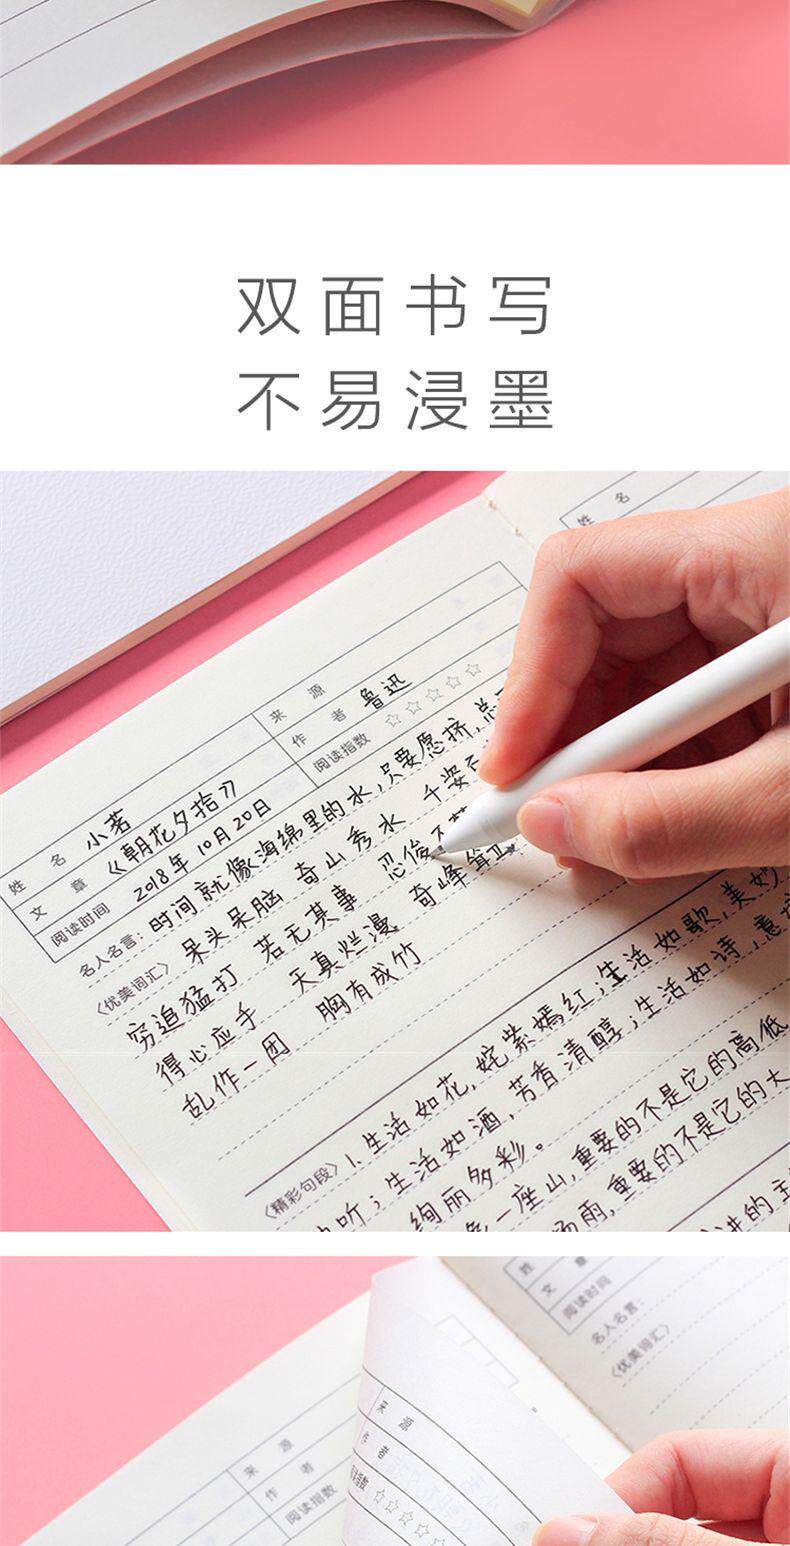 双面书写
不易浸墨
姓名
姓名 小茗
来源
文章 《朝花夕拾》
作者 鲁迅
阅读时间 2018年10月20日
阅读指数 ☆☆☆☆☆
名人名言：时间就像海绵里的水，只要愿挤，总
《优美词汇》 呆头呆脑 奇山秀水 千姿
穷追猛打 若无其事 忍俊不
得心应手 天真烂漫 奇峰耸
乱作一团 胸有成竹
《精彩句段》 1.生活如花，姹紫嫣红；生活如歌，美妙
听；生活如酒，芳香清醇；生活如诗，意
绚丽多彩。
一座山，重要的不是它的高低
雨，重要的不是它的大
讲的主
姓
文章
阅读时间
名人名言：
《优美词汇》
来源
作者
阅读指数
来源
作者
指数 ☆☆☆☆☆